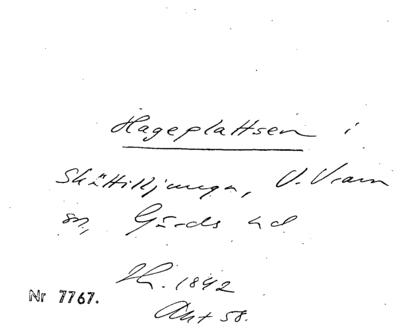 Hageplattsen i
Skättilljunga, V. Vram
sn, Gärds hd
Th. 1842
Akt 58.
Nr 7767.